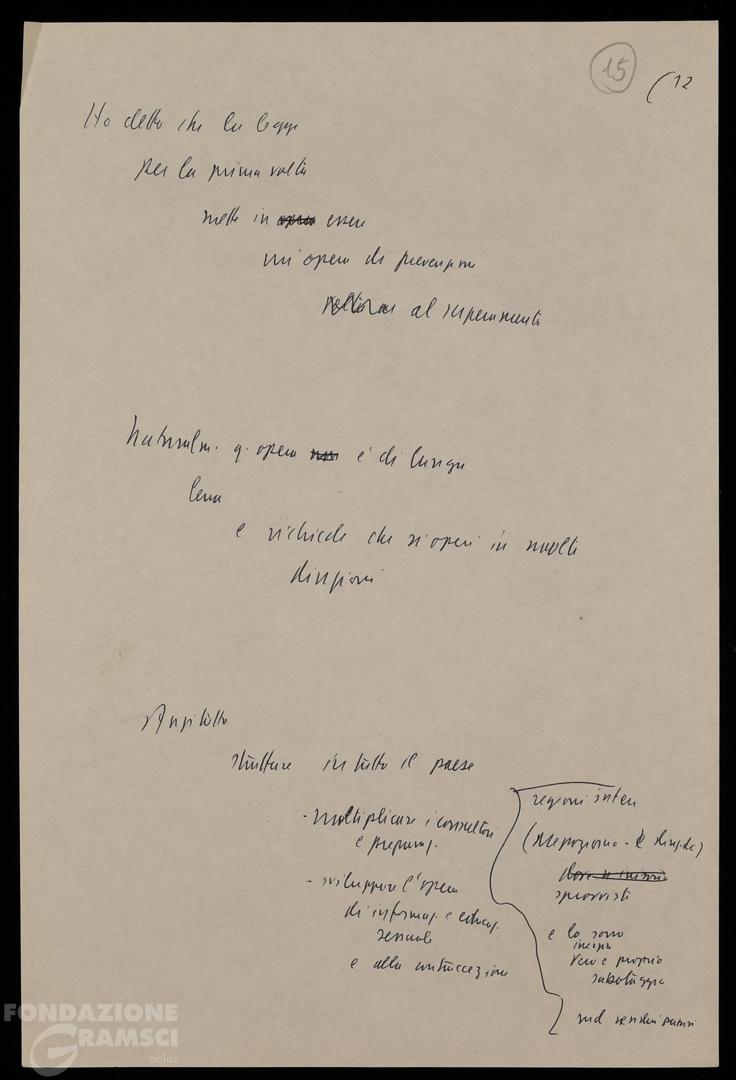 15
(12
Ho detto che la legge
per la prima volta
mette in essere
un'opera di prevenzione
al superamento
Naturalm. q. opera è di lunga
lena
e richiede che si operi in molte
direzioni
Anzitutto
strutture in tutto il paese
- moltiplicare i consultori
e preparaz.
- sviluppare l'opera
di informaz. e educaz.
sessuale
e alla contraccezione
regioni intere
(Mezzogiorno -
sprovviste
e lo sono
vero e proprio
sabotaggio
FONDAZIONE
GRAMSCI
onlus